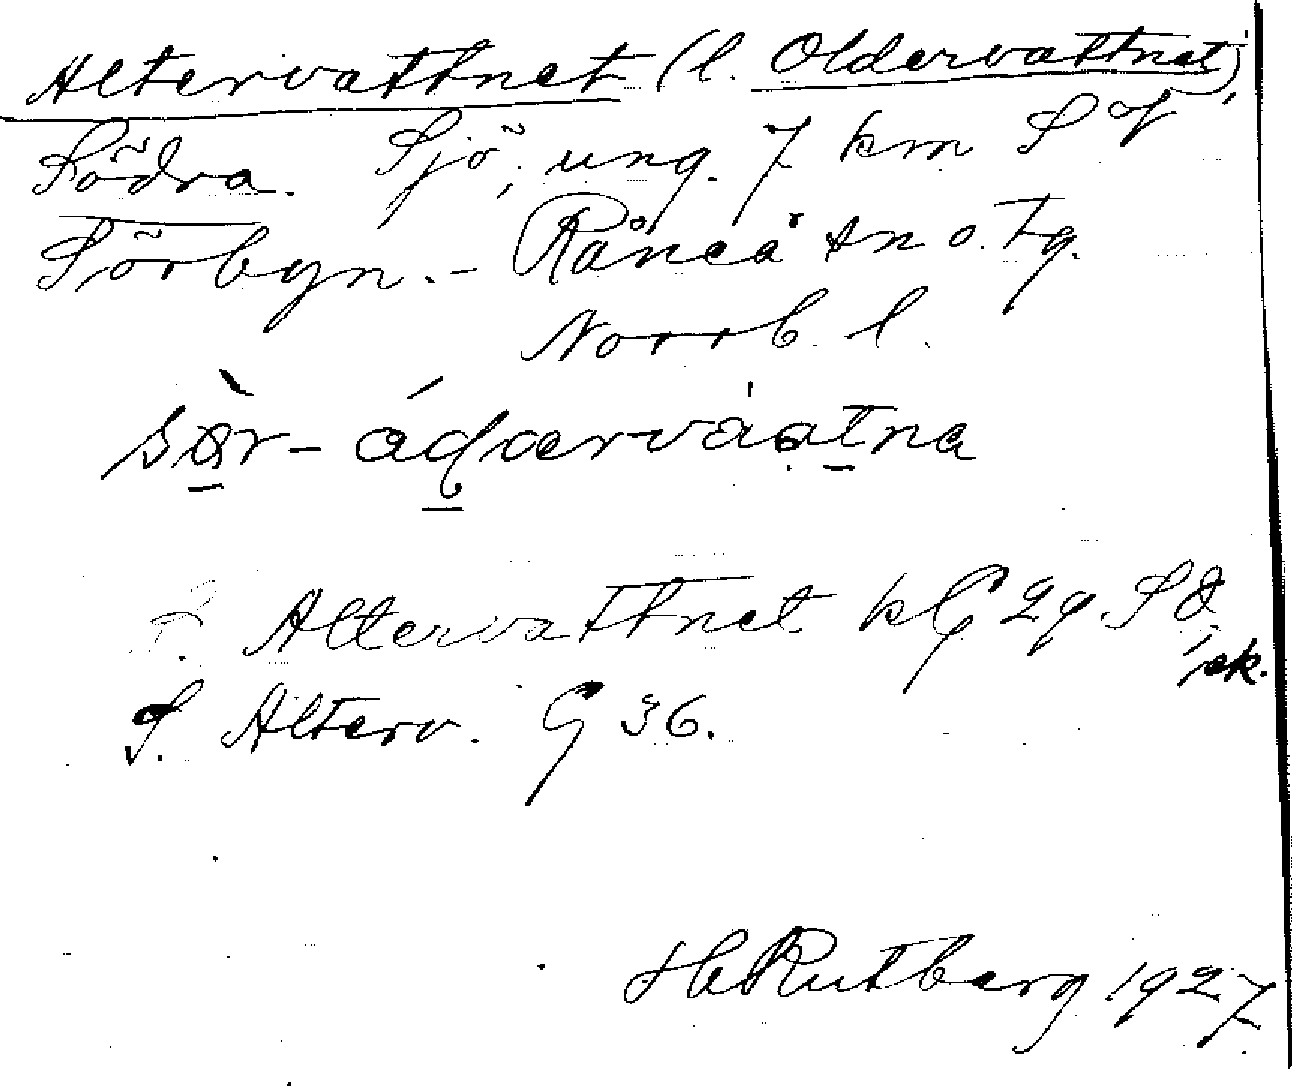 Altervattnet (l. Oldervattnet),
Södra. Sjö, ung. 7 km S of
Sörbyn. - Råneå sn o. tg.
Norrb. l.
S. Altervattnet kG 29 SO
ek.
S. Alterv. G 36.
H Rutberg 1927